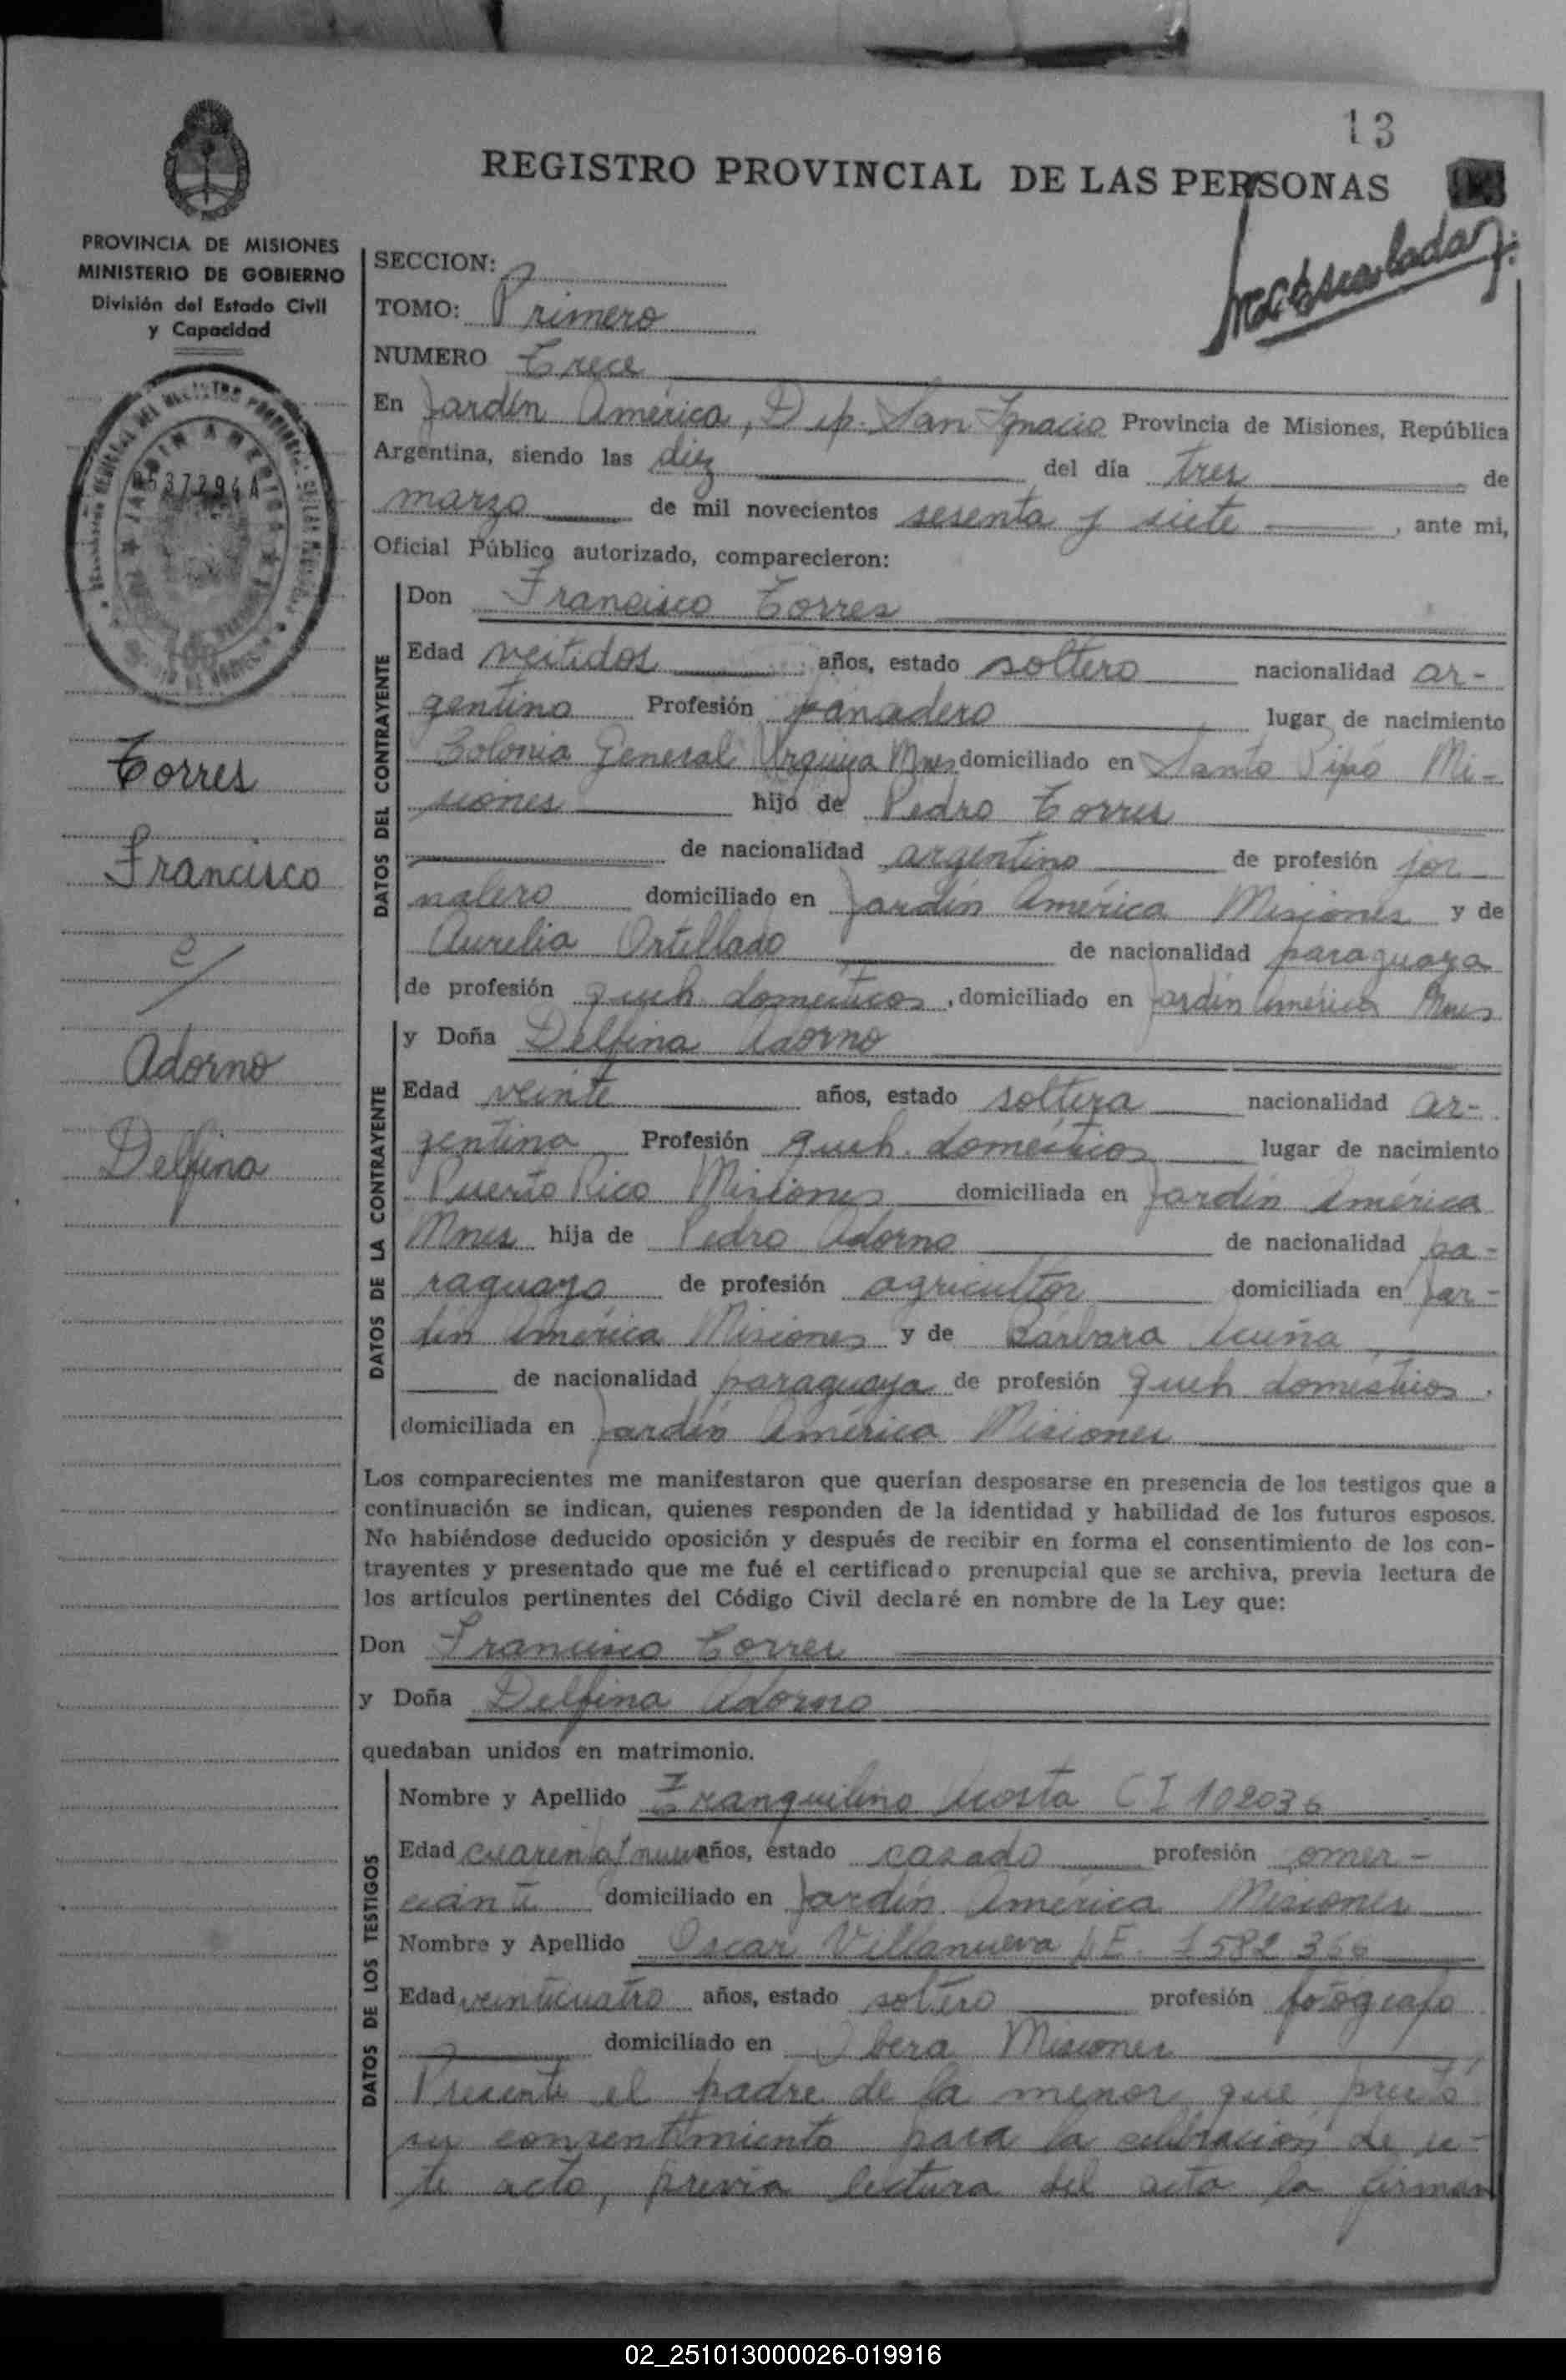 13
REGISTRO PROVINCIAL DE LAS PERSONAS
PROVINCIA DE MISIONES
MINISTERIO DE GOBIERNO
División del Estado Civil
y Capacidad
SECCION:
TOMO: Primero
NUMERO Trece
En Jardín América, Dep. San Ignacio Provincia de Misiones, República
Argentina, siendo las diez del día tres de
marzo de mil novecientos sesenta y siete, ante mi,
Oficial Público autorizado, comparecieron:
DATOS DEL CONTRAYENTE
Don Francisco Torres
Edad veitidos años, estado soltero nacionalidad ar-
gentino Profesión panadero lugar de nacimiento
Colonia General Urquiza Mnes domiciliado en Santo Pipó Mi-
siones hijo de Pedro Torres
de nacionalidad argentino de profesión jor
nalero domiciliado en Jardín América Misiones y de
Aurelia Ortellado de nacionalidad paraguaya
de profesión queh. domésticos, domiciliado en Jardín América Mnes
Torres
Francisco
c/
Adorno
Delfina
DATOS DE LA CONTRAYENTE
y Doña Delfina Adorno
Edad veinte años, estado soltera nacionalidad ar-
gentina Profesión queh. domésticos lugar de nacimiento
Puerto Rico Misiones domiciliada en Jardín América
Mnes hija de Pedro Adorno de nacionalidad pa-
raguayo de profesión agricultor domiciliada en Jar-
dín América Misiones y de Bárbara Acuña
de nacionalidad paraguaya de profesión queh domésticos.
domiciliada en Jardín América Misiones
Los comparecientes me manifestaron que querían desposarse en presencia de los testigos que a
continuación se indican, quienes responden de la identidad y habilidad de los futuros esposos.
No habiéndose deducido oposición y después de recibir en forma el consentimiento de los con-
trayentes y presentado que me fué el certificado prenupcial que se archiva, previa lectura de
los artículos pertinentes del Código Civil declaré en nombre de la Ley que:
Don Francisco Torres
y Doña Delfina Adorno
quedaban unidos en matrimonio.
DATOS DE LOS TESTIGOS
Nombre y Apellido Tranquilino Acosta CI 102036
Edad cuarenta y nueve años, estado casado profesión omer-
ciante domiciliado en Jardín América Misiones
Nombre y Apellido Oscar Villanueva LE. 1582366
Edad veinticuatro años, estado soltero profesión fotógrafo
domiciliado en Obera Misiones
Presente el padre de la menor que prestó
su consentimiento para la celebración de es-
te acto, previa lectura del acta la firman
02_251013000026-019916